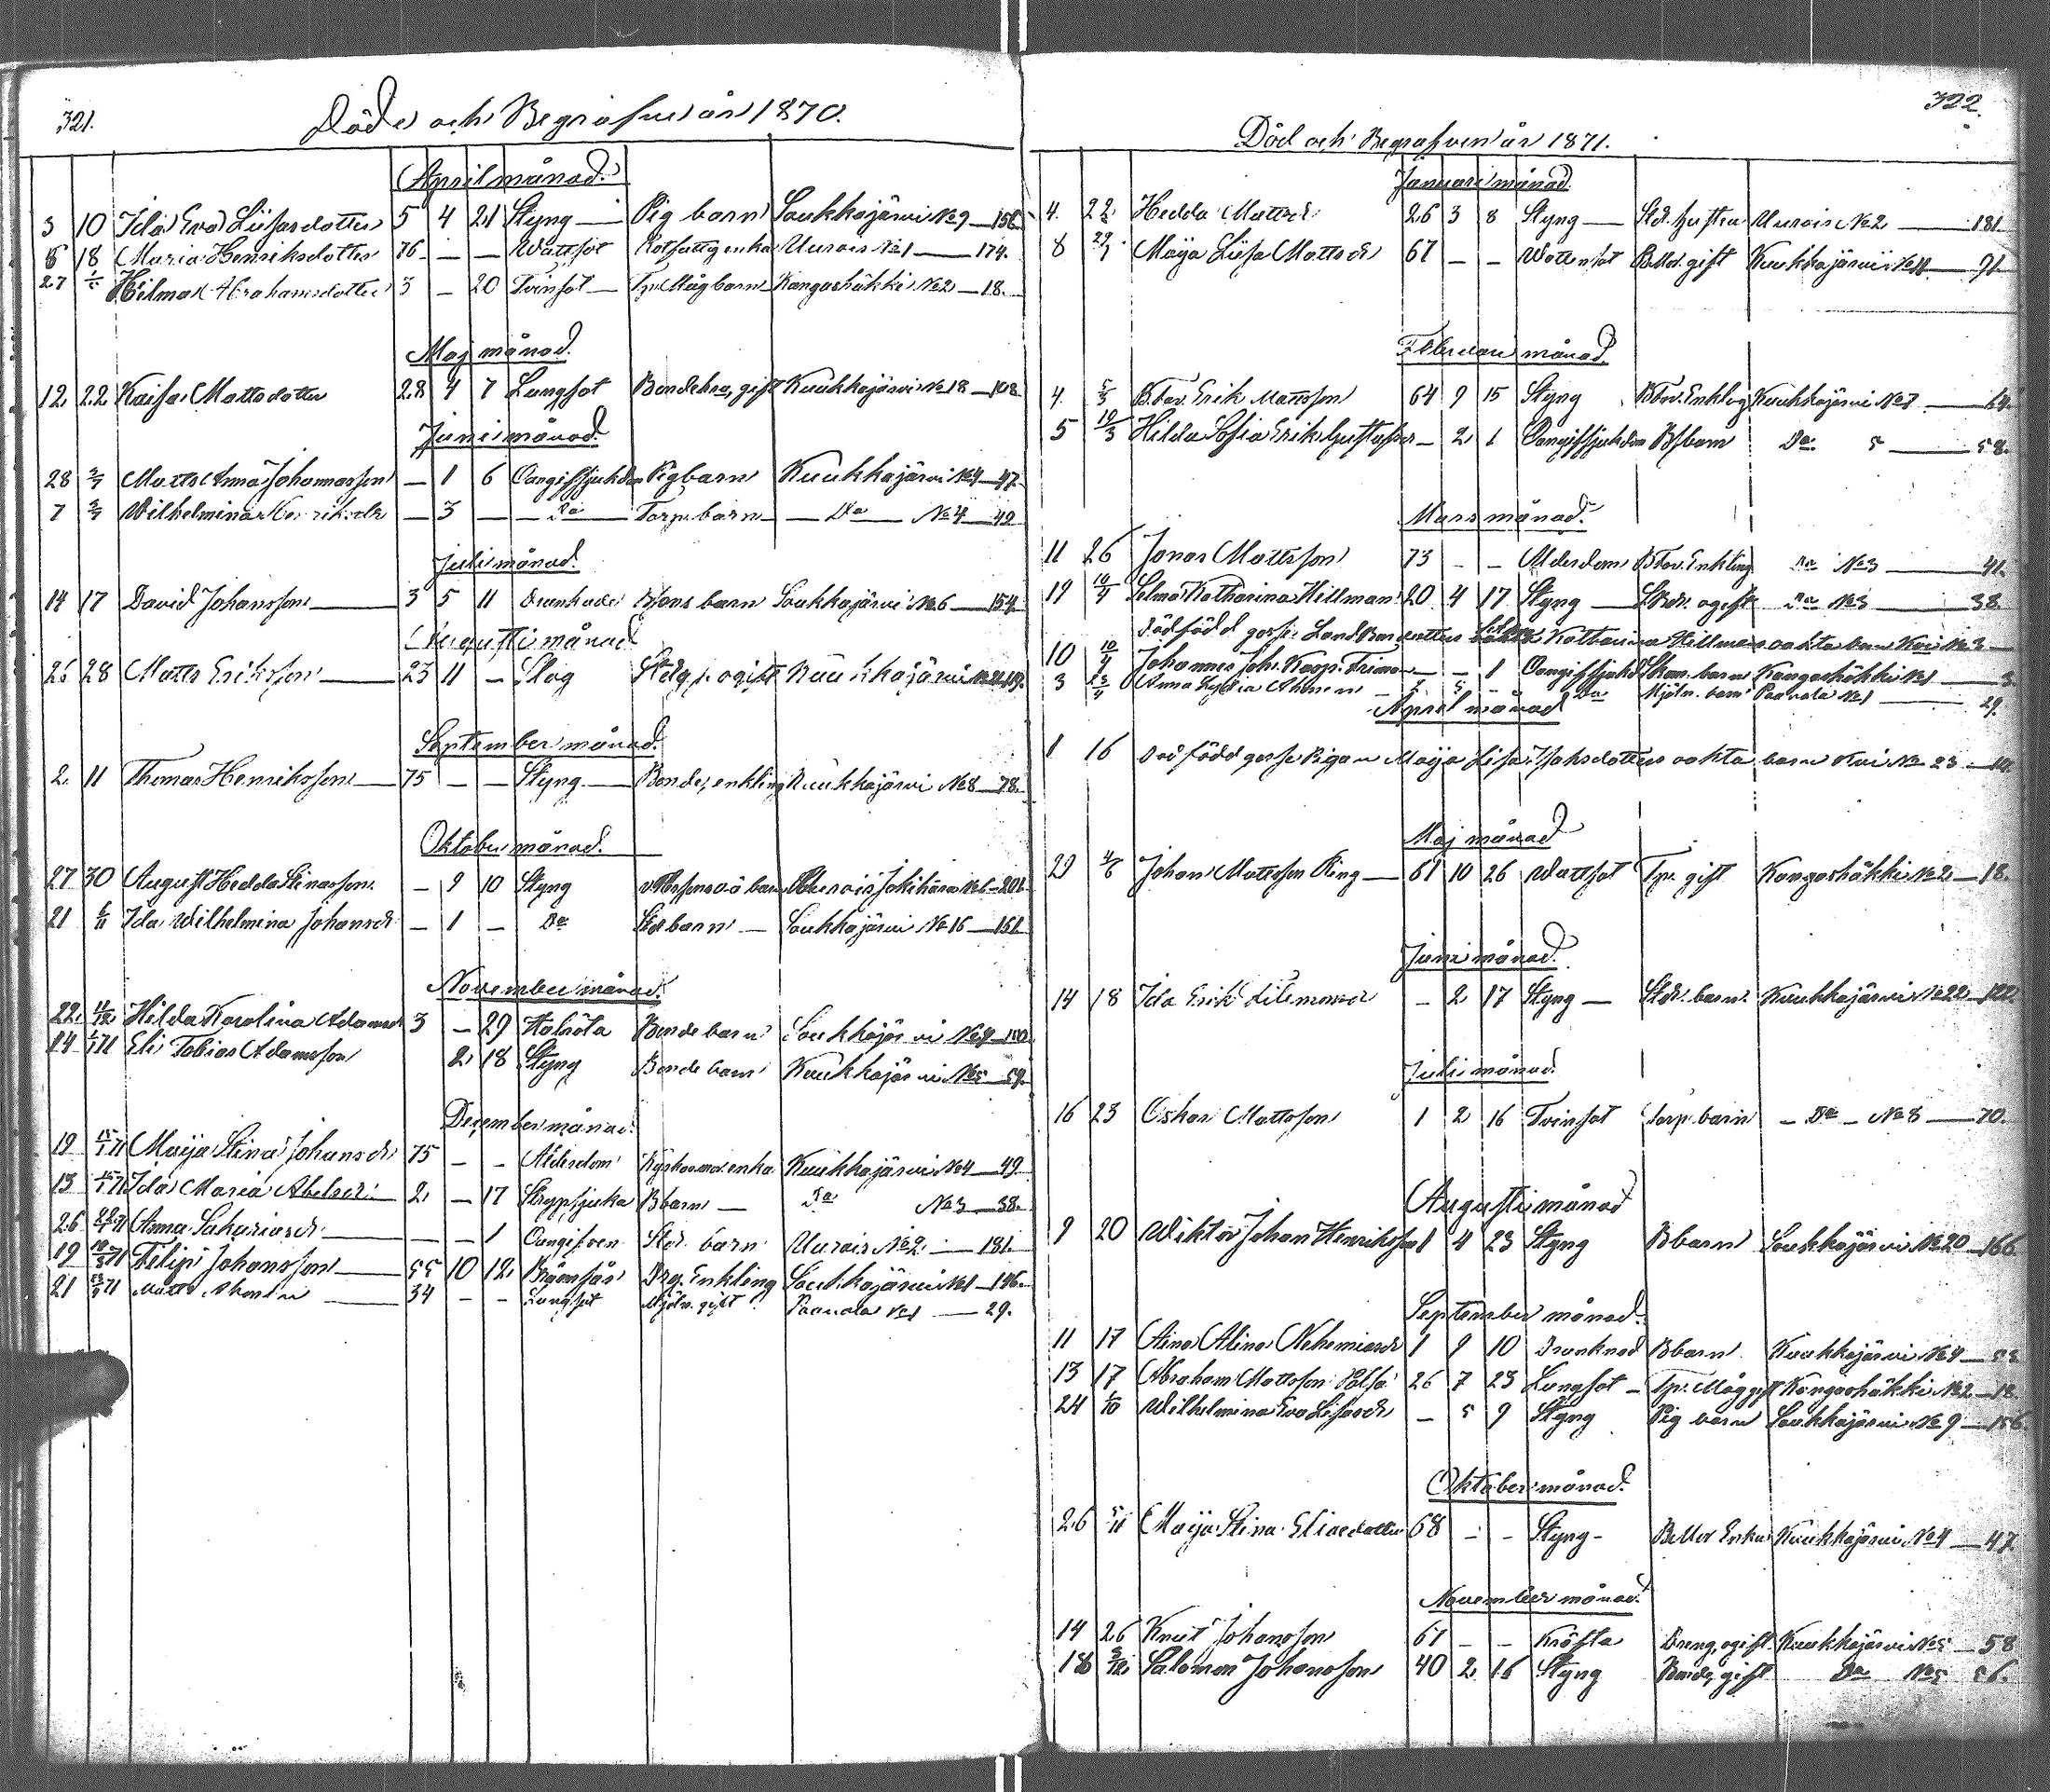 321.
Döde och Begrafne år 1870.
April månad.
3 10 Ida Eva Liisasdotter 5 4 21 Styng — Pig barn Saukkojärvi No 9 — 156.
6 18 Maria Henriksdotter 76 — — Wattsot Rotfattig enka Uurais No 1 — 174.
27 1/5 Hilma Abrahamsdotter 3 — 20 Tvinsot — Tp. Mågbarn Kangashäkki No 2 — 18.
Maj månad.
12. 22. Kaisa Mattsdotter 28 4 7 Lungsot gift Kuukkajärvi No 18 — 108.
Juni månad.
28 3/7 Matts Anna Johannasson — 1 6 Oangifsjukdom Pigbarn Kuukkajärvi No 4 — 47.
7 3/7 Wilhelmina — 3 — — Do — Torp. barn — Do — No 4 — 49
Juli månad.
14 17 David Johansson — 3 5 11 Drunknade barn Saukkojärvi No 6 — 154.
Augusti månad
26 28 Matts Eriksson — 23 11 — Slag ogift Kuukkajärvi
September månad.
2. 11 Thomas Henriksson — 75 — — Styng — Bonde, enkling Kuukkajärvi No 8 — 78.
Oktober månad.
27 30 August Hedda Stinasson. — 9 10 Styng
21 6/11 Ida Wilhelmina Johansdr — 1 — Do Stdr barn — Saukkojärvi No 16 — 161.
November månad.
22. 11/12 Hilda Karolina Adamsdr 3 — 29 Halsröta Bonde barn Saukkojärvi
14 Eli Tobias Adamsson 2. 18 Styng Bonde barn Kuukkajärvi No 5 — 59.
December månad.
19 15/1 71 Maija Stina Johansdr 75 — — Ålderdom enka Kuukkajärvi No 4 — 49
13 15/1 71 Ida Maria Abelsdr. 2. — 17 Strypsjuka B barn — Do No 3 — 38.
26 71 Anna Sakariasdr — — — 1 Oangifven Stdr. barn Uurais No 2. — 181.
19 71 Felip Johansson — 55 10 12. Drg. Enkling Saukkojärvi No 1 — 146.
21 71 Matts — 34 — — Lungsot Mjöln. gift Paanala No 1 — 29.
322.
Död och Begrafven år 1871.
Januari månad.
4. 22. Hedda Mattsdr 26 3 8 Styng — Std. hustru Uurais No 2 — 181.
8 29/1 Maija Liisa Mattsdr 67 — — Wattensot gift Kuukkajärvi — 91
Februari månad.
4. 5/3 B. Fav. Erik Mattsson 64 9 15 Styng B Fav. Enkling Kuukkajärvi No 7 — 64.
5 19/3 Hilda Sofia Erik Gustafsdr — 2. 1 Oangifsjukdom barn Do 5 — 58.
Mars månad.
11 26 Jonas Mattsson 73 — — Ålderdom B Fav. Enkling Do No 3 — 41.
19 10/4 Selma Katharina Hillman 20 4 17 Styng — ogift Do No 3 — 38.
Dödfödd gosse Katharina Hillmans oäkta barn No 3 —
10 10/4 Johannes Joh. — — 1 Oangifsjukd barn Kangashäkki No 1 — 3.
3 23/4 Anna Lydia Do Mjöln. barn Paanala No 1 — 29.
April månad
1 16 Dödfödd gosse Pigan Maija Lisa Isaksdotters oäkta barn No 23 — 14.
Maj månad
29 4/6 Johan Mattsson Ring — 61 10 26 Wattsot Tp. gift Kangashäkki No 2. — 18.
Juni månad.
14 18 Ida Erik — 2 17 Styng — Stdr. barn. Kuukkajärvi No 22 — 122.
Juli månad.
16 23 Oskar Mattsson 1 2 16 Tvinsot Torp. barn — Do — No 8 — 70.
Augusti månad
9 20 Wiktor Johan Henriksson 1 4 23 Styng B barn Saukkojärvi No 20 — 166.
September månad.
11 17 Aina Alina Nehemiasdr 1 9 10 Drunknad B barn Kuukkajärvi No 4 —
13 17 Abraham Mattsson 26 7 23 Lungsot — Tp. Måg gift Kangashäkki No 2. — 18.
24 1/10 Wilhelmina Eva Lisasdr — 5 9 Styng Pig barn Saukkojärvi No 9 — 156.
Oktober månad.
26 5/11 Maija Stina Eliasdotter 68 — — Styng — Enka Kuukkajärvi No 4 — 47.
November månad.
14 26 Knut Johansson 61 — — Kräfta Dreng, ogift. Kuukkajärvi No 5 — 58
18 3/12. Salomon Johansson 40 2. 16 Styng Bonde, gift Do No 5 56.